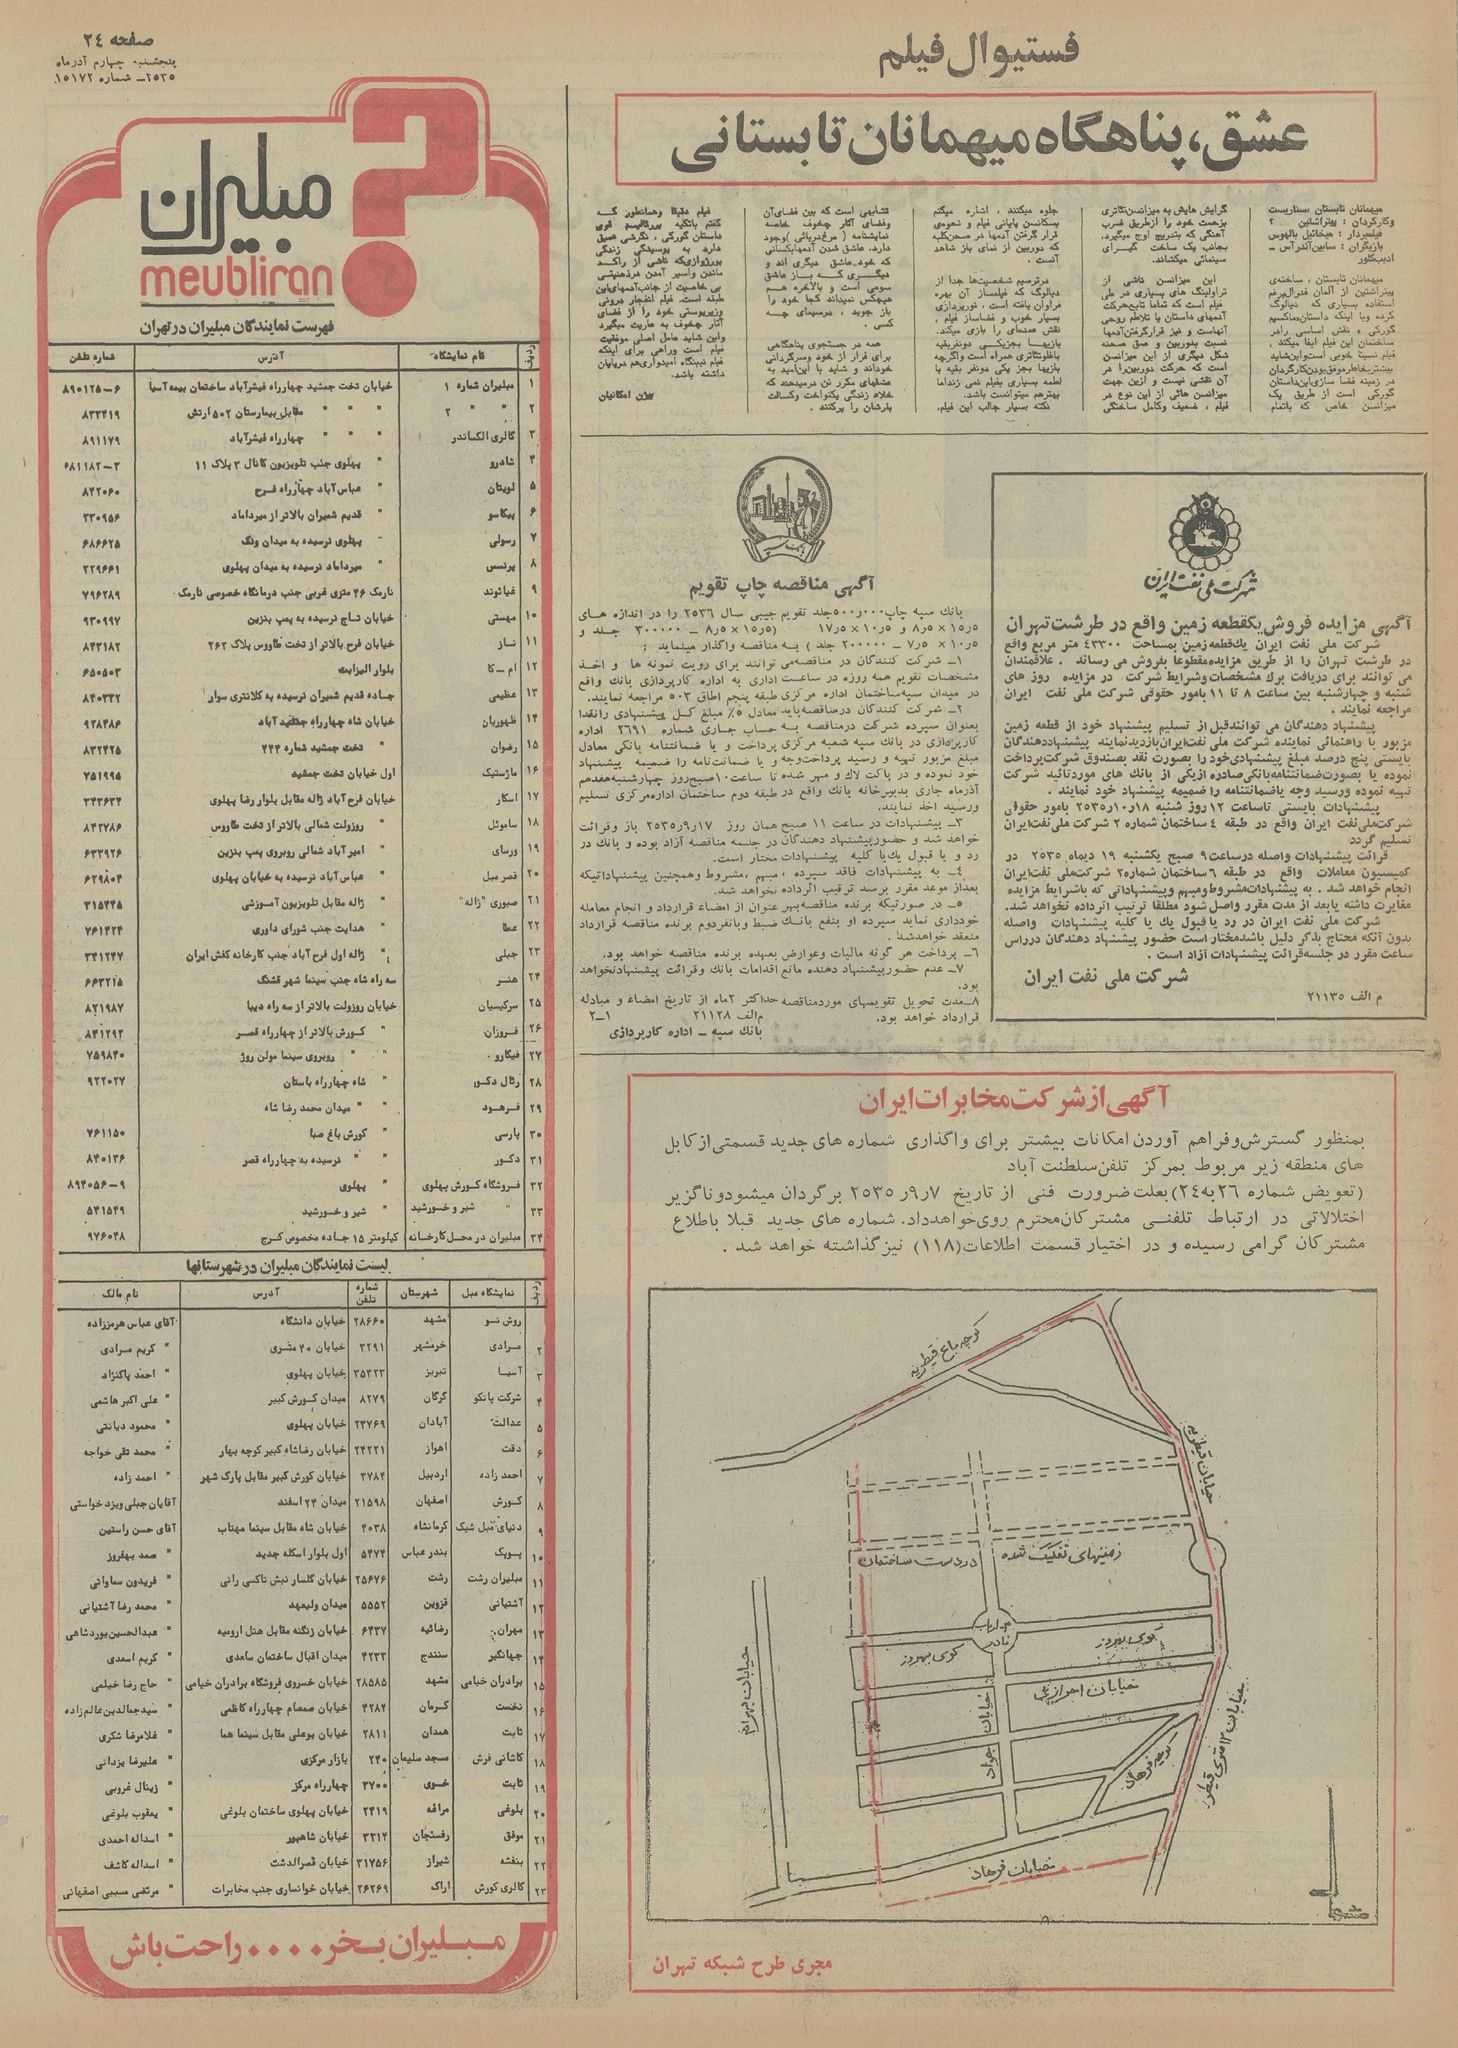 صفحه ۲۴
پنجشنبه چهارم آذرماه
۲۵۳۵ـ شماره ۱۵۱۷۲
فستیوال فیلم
عشق، پناهگاه میهمانان تابستانی
میهمانان تابستان، سناریست
وکارگردان: پیتراشتین ۲
فیلمبردار: میخائیل بالهوس
بازیگران: سابین‌آندرآس ـ
ادیب‌کلور
میهمانان تابستان، ساخته‌ی
پیتراشتین از آلمان فدرال‌برغم
استفاده بسیاری که دیالوگ
کرده وبا اینکه داستان‌ماکسیم
گورکی، نقش اساسی رادر
ساختمان این فیلم ایفا میکند،
فیلم نسبتا خوبی است‌واین‌شاید
بیشتربخاطرموفق‌بودن‌کارگردان
در زمینه فضا سازی‌این‌داستان
گورکی است از طریق یک
میزانسن خاص که باتمام
گرایش هایش به میزانسن‌تئاتری
بزحمت خود را ازطریق ضرب
آهنگی که بتدریج اوج میگیرد،
بجانب یک ساخت گیرای
سینمائی میکشاند.
این میزانسن ناشی از
تراولینگ های بسیاری در طی
فیلم است که تماما تابع‌حرکت
آدمهای داستان یا تلاطم روحی
آنهاست و نیز قرارگرفتن‌آدمها
نسبت بدوربین و عمق صحنه
شکل دیگری از این میزانسن
است که حرکت دوربین‌را در
آن نقشی نیست و ازین جهت
میزانسن هائی از این نوع در
فیلم، ضعیف وکامل ساختگی
جلوه میکنند، اشاره میکنم
بسکانسن پایانی فیلم و نحوه‌ی
قرار گرفتن آدمها در صحن‌کلبه
که دوربین از نمای باز شاهد
آنست.
درترسیم شخصیت‌ها جدا از
دیالوگ که فیلمساز آن بهره
فراوان یافته است، نورپردازی
بسیار خوب و فضاساز فیلم،
نقش عمده‌ای را بازی میکند.
بازیها بجزیکی دونفربقیه
باغلوتئاتری همراه است واگرچه
بازیها بجز یکی دونفر بقیه با
لطمه بسیاری بفیلم نمی زنداما
بهترهم میتوانست باشد.
نکته بسیار جالب این فیلم،
تشابهی است که بین فضای‌آن
وفضای آثار چخوف خاصه
نمایشنامه (مرغ‌دریائی) وجود
دارد. عاشق شدن آدمهابکسانی
که خود،عاشق دیگری اند و
دیگری که باز عاشق
سومی است و بالاخره هم
هیچکس نمیداند کجا خود را
باز جوید، درسیمای چه
کسی.
همه در جستجوی پناهگاهی
برای فرار از خود وسرگردانی
خوداند و شاید با این‌امید به
عشقهای مکرر تن درمیدهند که
خلاء زندگی یکنواخت وکسالت
بارشان را پرکنند.
فیلم دقیقا وهمانطور که
گفتم باتکیه بررئالیسم قوی
داستان گورکی، نگرشی عمیق
دارد به پوسیدگی زندگی
بورژوازی‌که ناشی از راکد
ماندن واسیر آمدن درذهنیتی
بی خاصیت از جانب‌آدمهای‌این
طبقه است. فیلم انفجار درونی
وزیرپوستی خود را از فضای
آثار چخوف به عاریت میگیرد
واین شاید عامل اصلی موفقیت
فیلم است وراهی برای اینکه
فیلم نیمنگاه امیدواری‌هم درپایان
داشته باشد.
بیژن امکانیان
شرکت ملی نفت ایران
آگهی مزایده فروش‌یکقطعه زمین واقع در طرشت‌تهران
شرکت ملی نفت ایران یک‌قطعه زمین بمساحت ۴۳۳۰۰ متر مربع واقع
در طرشت تهران را از طریق مزایده‌مقطوعا بفروش می رساند. علاقمندان
می توانند برای دریافت برک مشخصات وشرایط شرکت در مزایده روز های
شنبه و چهارشنبه بین ساعت ۸ تا ۱۱ بامور حقوقی شرکت ملی نفت ایران
مراجعه نمایند.
پیشنهاد دهندگان می توانندقبل از تسلیم پیشنهاد خود از قطعه زمین
مزبور با راهنمائی نماینده شرکت ملی نفت‌ایران‌بازدیدنمایند پیشنهاددهندگان
بایستی پنج درصد مبلغ پیشنهادی‌خود را بصورت نقد بصندوق شرکت‌پرداخت
نموده یا بصورت‌ضمانتنامه‌بانکی‌صادره ازیکی از بانک های موردتائید شرکت
تهیه نموده ورسید وجه یاضمانتنامه را ضمیمه پیشنهاد خود نمایند.
پیشنهادات بایستی تاساعت ۱۲ روز شنبه ۱۸ر۱۰ر۲۵۳۵ بامور حقوقی
شرکت‌ملی نفت ایران واقع در طبقه ۴ ساختمان شماره ۲ شرکت ملی نفت‌ایران
تسلیم گردد
قرائت پیشنهادات واصله درساعت ۹ صبح یکشنبه ۱۹ دیماه ۲۵۳۵ در
کمیسیون معاملات واقع در طبقه ۶ ساختمان شماره۲ شرکت‌ملی نفت ایران
انجام خواهد شد. به پیشنهادات‌مشروط ومبهم وپیشنهاداتی که باشرایط مزایده
مغایرت داشته یابعد از مدت مقرر واصل‌شود مطلقا ترتیب اثرداده نخواهد شد.
شرکت ملی نفت ایران در رد یاقبول یک یا کلیه پیشنهادات واصله
بدون آنکه محتاج بذکر دلیل باشدمختار است حضور پیشنهاد دهندگان درراس
ساعت مقرر در جلسه‌قرائت پیشنهادات آزاد است.
شرکت ملی نفت ایران
م الف ۲۱۱۳۵
آگهی مناقصه چاپ تقویم
بانک سپه چاپ۵۰۰ر۰۰۰جلد تقویم جیبی سال ۲۵۳۶ را در اندازه های
۱۵ر۵ × ۸ر۵ و ۱۰ر۵ × ۱۷ر۵ (۱۵ر۵ × ۸ر۵ ـ ۳۰۰۰۰۰ جلد و
۱۰ر۵ × ۷ر۵ ـ ۲۰۰۰۰۰ جلد) به مناقصه واگذار مینماید:
۱ـ شرکت کنندگان در مناقصه‌می توانند برای رویت نمونه ها و اخذ
مشخصات تقویم همه روزه در ساعت اداری به اداره کارپردازی بانک واقع
در میدان سپه‌ساختمان اداره مرکزی طبقه پنجم اطاق ۵۰۳ مراجعه نمایند.
۲ـ شرکت کنندگان درمناقصه‌باید معادل ۵٪ مبلغ کل پیشنهادی رانقدا
بعنوان سپرده شرکت درمناقصه به حساب جاری شماره ۲۶۹۱ اداره
کارپردازی در بانک سپه شعبه مرکزی پرداخت و یا ضمانتنامه بانکی معادل
مبلغ مزبور تهیه و رسید پرداخت‌وجه و یا ضمانت‌نامه را ضمیمه پیشنهاد
خود نموده و در پاکت لاک و مهر شده تا ساعت۱۰صبح‌روز چهارشنبه‌هفدهم
آذرماه جاری بدبیرخانه بانک واقع در طبقه دوم ساختمان اداره‌مرکزی تسلیم
ورسید اخذ نمایند.
۳ـ پیشنهادات در ساعت ۱۱ صبح همان روز ۱۷ر۹ر۲۵۳۵ باز وقرائت
خواهد شد و حضورپیشنهاد دهندگان در جلسه مناقصه آزاد بوده و بانک در
رد و یا قبول یک‌یا کلیه پیشنهادات مختار است.
۴ـ به پیشنهادات فاقد سپرده، مبهم، مشروط وهمچنین پیشنهاداتیکه
بعداز موعد مقرر برسد ترتیب اثرداده نخواهد شد.
۵ـ در صورتیکه برنده مناقصه‌بهر عنوان از امضاء قرارداد و انجام معامله
خودداری نماید سپرده او بنفع بانک ضبط وبانفردوم برنده مناقصه قرارداد
منعقد خواهدشد.
۶ـ پرداخت هر گونه مالیات وعوارض بعهده برنده مناقصه خواهد بود.
۷ـ عدم حضورپیشنهاد دهنده مانع اقدامات بانک وقرائت پیشنهادنخواهد
بود.
۸ـ مدت تحویل تقویمهای موردمناقصه حداکثر ۲ماه از تاریخ امضاء و مبادله
قرارداد خواهد بود. م‌الف ۲۱۱۲۸ ۱ـ۲
بانک سپه ـ اداره کارپردازی
آگهی از شرکت مخابرات ایران
بمنظور گسترش‌وفراهم آوردن امکانات بیشتر برای واگذاری شماره های جدید قسمتی ازکابل
های منطقه زیر مربوط بمرکز تلفن‌سلطنت آباد
(تعویض شماره ۲۶به۲۴) بعلت ضرورت فنی از تاریخ ۷ر۹ر۲۵۳۵ برگردان میشودوناگزیر
اختلالاتی در ارتباط تلفنی مشترکان‌محترم روی‌خواهدداد. شماره های جدید قبلا باطلاع
مشترکان گرامی رسیده و در اختیار قسمت اطلاعات(۱۱۸) نیزگذاشته خواهد شد.
کوچه باغ قیطریه
خیابان قیطریه
زمینهای تفکیک شده
دردست ساختمان
کوی بهروز
کوی بهروز
خیابان
جواد
خیابان فرهاد
مجری طرح شبکه تهران
مبلیران
meubliran
فهرست نمایندگان مبلیران در تهران
ردیف نام نمایشگاه آدرس شماره تلفن
۱ مبلیران شماره ۱ خیابان تخت جمشید چهارراه فیشرآباد ساختمان بیمه‌آسیا ۶–۸۹۰۱۲۵
۲ " " ۲ " " " مقابل بیمارستان ۵۰۲ ارتش ۸۳۳۴۱۹
۳ گالری الکساندر " " " چهارراه فیشرآباد ۸۹۱۱۷۹
۴ شادرو " پهلوی جنب تلویزیون کانال ۳ پلاک ۱۱ ۳–۶۸۱۱۸۲
۵ لویتان " عباس‌آباد چهارراه فرح ۸۴۲۰۶۰
۶ پیکاسو " قدیم شمیران بالاتر از میرداماد ۲۳۰۹۵۶
۷ رسولی " پهلوی نرسیده به میدان ونک ۶۸۶۶۲۵
۸ پرنسس " میرداماد نرسیده به میدان پهلوی ۲۲۹۶۶۱
۹ غیاثوند نارمک ۴۶ متری غربی جنب درمانگاه خصوصی نارمک ۷۹۶۲۸۹
۱۰ مهستی خیابان تاج نرسیده به پمپ بنزین ۹۳۰۹۹۷
۱۱ نیاز خیابان فرح بالاتر از تخت طاووس پلاک ۲۶۲ ۸۴۳۱۸۲
۱۲ ام ـ کا بلوار الیزابت ۶۵۰۵۰۳
۱۳ عظیمی جاده قدیم شمیران نرسیده به کلانتری سوار ۸۴۰۳۳۲
۱۴ ظهوریان خیابان شاه چهارراه جمشید آباد ۹۲۸۴۸۶
۱۵ رضوان " تخت جمشید شماره ۴۴۴ ۸۳۲۴۲۵
۱۶ ماژستیک اول خیابان تخت جمشید ۷۵۱۹۹۵
۱۷ اسکار خیابان فرح‌آباد ژاله مقابل بلوار رضا پهلوی ۳۴۳۶۳۴
۱۸ ساموئل " روزولت شمالی بالاتر از تخت طاووس ۸۴۲۷۸۶
۱۹ ورسای " امیرآباد شمالی روبروی پمپ بنزین ۶۳۳۹۲۶
۲۰ قصر مبل " عباس‌آباد نرسیده به خیابان پهلوی ۶۲۹۸۰۴
۲۱ صبوری "ژاله" " ژاله مقابل تلویزیون آموزشی ۳۱۵۴۴۵
۲۲ عطا " هدایت جنب شورای داوری ۷۶۱۴۲۴
۲۳ جبلی " ژاله اول فرح‌آباد جنب کارخانه کفش ایران ۳۴۱۲۴۷
۲۴ هنر سه راه شاه جنب سینما شهر قشنگ ۶۶۳۲۱۵
۲۵ سرکیسیان خیابان روزولت بالاتر از سه راه دیبا ۸۲۱۹۸۷
۲۶ فروزان " کورش بالاتر از چهارراه قصر ۸۴۱۲۹۲
۲۷ فیگارو " " روبروی سینما مولن روژ ۷۵۹۸۴۰
۲۸ رئال دکور " شاه چهارراه باستان ۹۲۲۰۲۷
۲۹ فرهود " " میدان محمد رضا شاه
۳۰ پارسی " کورش باغ صبا ۷۶۱۱۵۰
۳۱ دکور " " نرسیده به چهارراه قصر ۸۴۰۱۳۶
۳۲ فروشگاه کورش پهلوی " پهلوی ۹–۸۹۴۰۵۶
۳۳ " شیر و خورشید " شیر و خورشید ۵۴۱۵۴۹
۳۴ مبلیران در محل کارخانه کیلومتر ۱۵ جاده مخصوص کرج ۹۷۶۰۴۸
لیست نمایندگان مبلیران در شهرستانها
ردیف نمایشگاه مبل شهرستان شماره تلفن آدرس نام مالک
روش نو مشهد ۲۸۶۶۰ خیابان دانشگاه آقای عباس هرمززاده
۲ مرادی خرمشهر ۳۲۹۱ خیابان ۴۰ متری " کریم مرادی
۳ آسیا تبریز ۳۵۳۲۳ خیابان پهلوی " احمد پاکنژاد
۴ شرکت پانکو گرگان ۸۲۷۹ میدان کورش کبیر " علی اکبر هاشمی
۵ عدالت آبادان ۲۳۷۶۹ خیابان پهلوی " محمود دیانتی
۶ دقت اهواز ۲۴۲۲۱ خیابان رضاشاه کبیر کوچه بهار " محمد تقی خواجه
۷ احمد زاده اردبیل ۳۷۸۴ خیابان کورش کبیر مقابل پارک شهر " احمد زاده
۸ کورش اصفهان ۲۱۵۹۸ میدان ۲۴ اسفند آقایان جبلی ویزد خواستی
۹ دنیای مبل شیک کرمانشاه ۴۰۳۸ خیابان شاه مقابل سینما مهتاب آقای حسن راستین
۱۰ پوپک بندر عباس ۵۴۷۴ اول بلوار اسکله جدید " صمد بهفروز
۱۱ مبلیران رشت رشت ۲۵۶۷۶ خیابان گلسار نبش تاکسی رانی " فریدون سماواتی
۱۲ آشتیانی قزوین ۵۵۵۲ میدان ولیعهد " محمد رضا آشتیانی
۱۳ مهران رضائیه ۶۴۳۷ خیابان زنگنه مقابل هتل ارومیه " عبدالحسین پوردشاهی
۱۴ جهانگیر سنندج ۴۲۳۳ میدان اقبال ساختمان ساعدی " کریم اسعدی
۱۵ برادران خیامی مشهد ۲۸۵۸۵ خیابان خسروی فروشگاه برادران خیامی " حاج رضا خیامی
۱۶ نخست کرمان ۴۲۸۴ خیابان صمصام چهارراه کاظمی " سیدجمالدین عالم‌زاده
۱۷ ثابت همدان ۲۸۱۱ خیابان بوعلی مقابل سینما هما " غلامرضا شکری
۱۸ کاشانی فرش مسجد سلیمان ۲۴۰ بازار مرکزی " علیرضا یزدانی
۱۹ ثابت خوی ۳۷۰۰ چهارراه مرکز " زینال غروبی
۲۰ بلوغی مراغه ۲۴۱۹ خیابان پهلوی ساختمان بلوغی " یعقوب بلوغی
۲۱ موفق رفسنجان ۳۳۱۴ خیابان شاهپور " اسداله احمدی
۲۲ بنفشه شیراز ۳۱۷۵۶ خیابان قصرالدشت " اسداله کاشف
۲۳ گالری کورش اراک ۲۶۲۶۹ خیابان خوانساری جنب مخابرات " مرتضی مسیبی اصفهانی
مبلیران بخر .... راحت باش